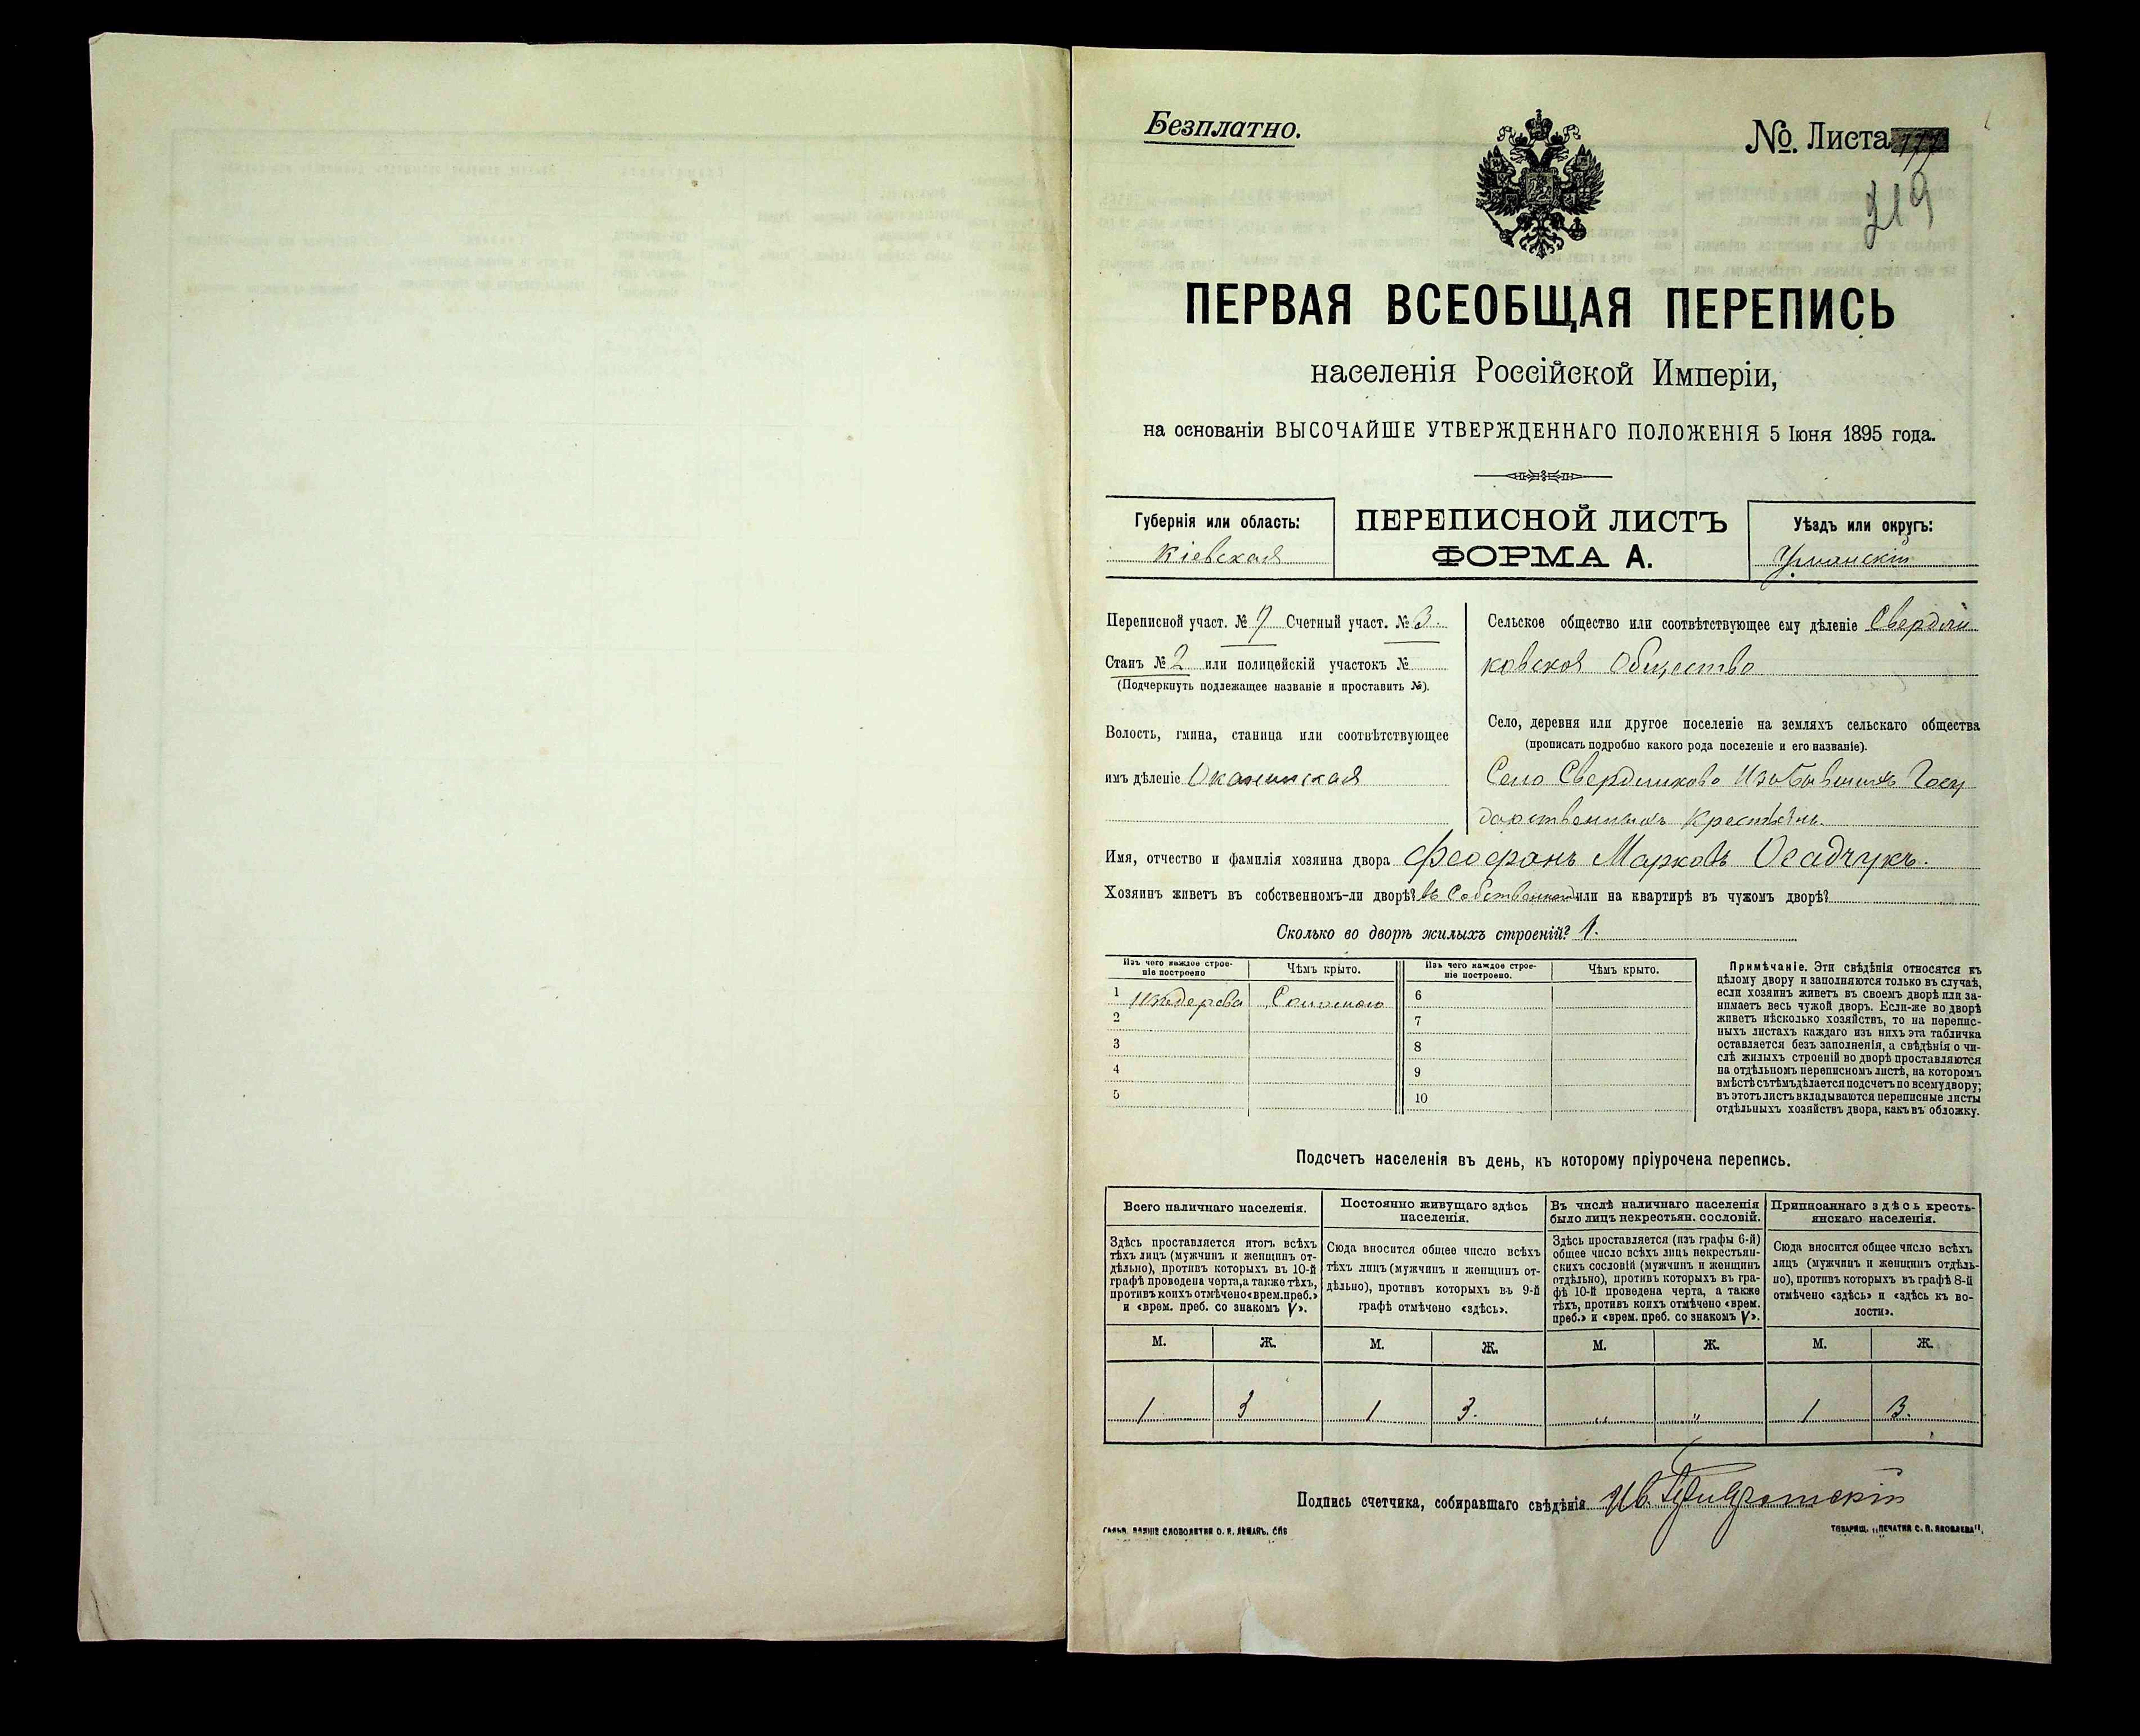 Безплатно.
№. Листа 177
219
ПЕРВАЯ ВСЕОБЩАЯ ПЕРЕПИСЬ
населенія Россійской Имперіи,
на основаніи ВЫСОЧАЙШЕ УТВЕРЖДЕННАГО ПОЛОЖЕНІЯ 5 Іюня 1895 года.
Губернія или область:
Кіевская
ПЕРЕПИСНОЙ ЛИСТЪ
ФОРМА А.
Уѣздъ или округъ:
Уманскій
Переписной участ. № 7 Счетный участ. № 3.
Станъ № 2 или полицейскій участокъ №
(Подчеркнуть подлежащее названіе и проставить №).
Волость, гмина, станица или соотвѣтствующее
имъ дѣленіе Оканинская
Сельское общество или соотвѣтствующее ему дѣленіе Свердли
ковское Общество
Село, деревня или другое поселеніе на земляхъ сельскаго общества
(прописать подробно какого рода поселеніе и его названіе).
Село Свердликово Изъ Бывшихъ Госу
дарственныхъ Крестьянъ.
Имя, отчество и фамилія хозяина двора Феофанъ Марковъ Осадчукъ.
Хозяинъ живетъ въ собственномъ-ли дворѣ? въ Собственном или на квартирѣ въ чужомъ дворѣ?
Сколько во дворѣ жилыхъ строеній? 1.
Изъ чего каждое строе-
ніе построено
Чѣмъ крыто.
Изъ чего каждое строе-
ніе построено.
Чѣмъ крыто.
1 Изъ дерева Соломою
2
3
4
5
6
7
8
9
10
Примѣчаніе. Эти свѣдѣнія относятся къ
цѣлому двору и заполняются только въ случаѣ,
если хозяинъ живетъ въ своемъ дворѣ или за-
нимаетъ весь чужой дворъ. Если-же во дворѣ
живетъ нѣсколько хозяйствъ, то на перепис-
ныхъ листахъ каждаго изъ нихъ эта табличка
оставляется безъ заполненія, а свѣдѣнія о чи-
слѣ жилыхъ строеній во дворѣ проставляются
на отдѣльномъ переписномъ листѣ, на которомъ
вмѣстѣ съ тѣмъ дѣлается подсчетъ по всему двору;
въ этотъ листъ вкладываются переписные листы
отдѣльныхъ хозяйствъ двора, какъ въ обложку.
Подсчетъ населенія въ день, къ которому пріурочена перепись.
Всего наличнаго населенія.
Здѣсь проставляется итогъ всѣхъ
тѣхъ лицъ (мужчинъ и женщинъ от-
дѣльно), противъ которыхъ въ 10-й
графѣ проведена черта, а также тѣхъ,
противъ коихъ отмѣчено «врем. преб.»
и «врем. преб. со знакомъ V».
Постоянно живущаго здѣсь
населенія.
Сюда вносится общее число всѣхъ
тѣхъ лицъ (мужчинъ и женщинъ от-
дѣльно), противъ которыхъ въ 9-й
графѣ отмѣчено «здѣсь».
Въ числѣ наличнаго населенія
было лицъ некрестьян. сословій.
Здѣсь проставляется (изъ графы 6-й)
общее число всѣхъ лицъ некрестьян-
скихъ сословій (мужчинъ и женщинъ
отдѣльно), противъ которыхъ въ гра-
фѣ 10-й проведена черта, а также
тѣхъ, противъ коихъ отмѣчено «врем.
преб.» и «врем. преб. со знакомъ V».
Приписаннаго здѣсь кресть-
янскаго населенія.
Сюда вносится общее число всѣхъ
лицъ (мужчинъ и женщинъ отдѣль-
но), противъ которыхъ въ графѣ 8-й
отмѣчено «здѣсь» и «здѣсь къ во-
лости».
М. Ж. М. Ж. М. Ж. М. Ж.
1 3 1 3. " " 1 3.
Подпись счетчика, собиравшаго свѣдѣнія Ив.
СЛОВОЛИТНЯ О. И. ЛЕМАНЪ, СПБ
ТОВАРИЩ. „ПЕЧАТНЯ С. П. ЯКОВЛЕВА".